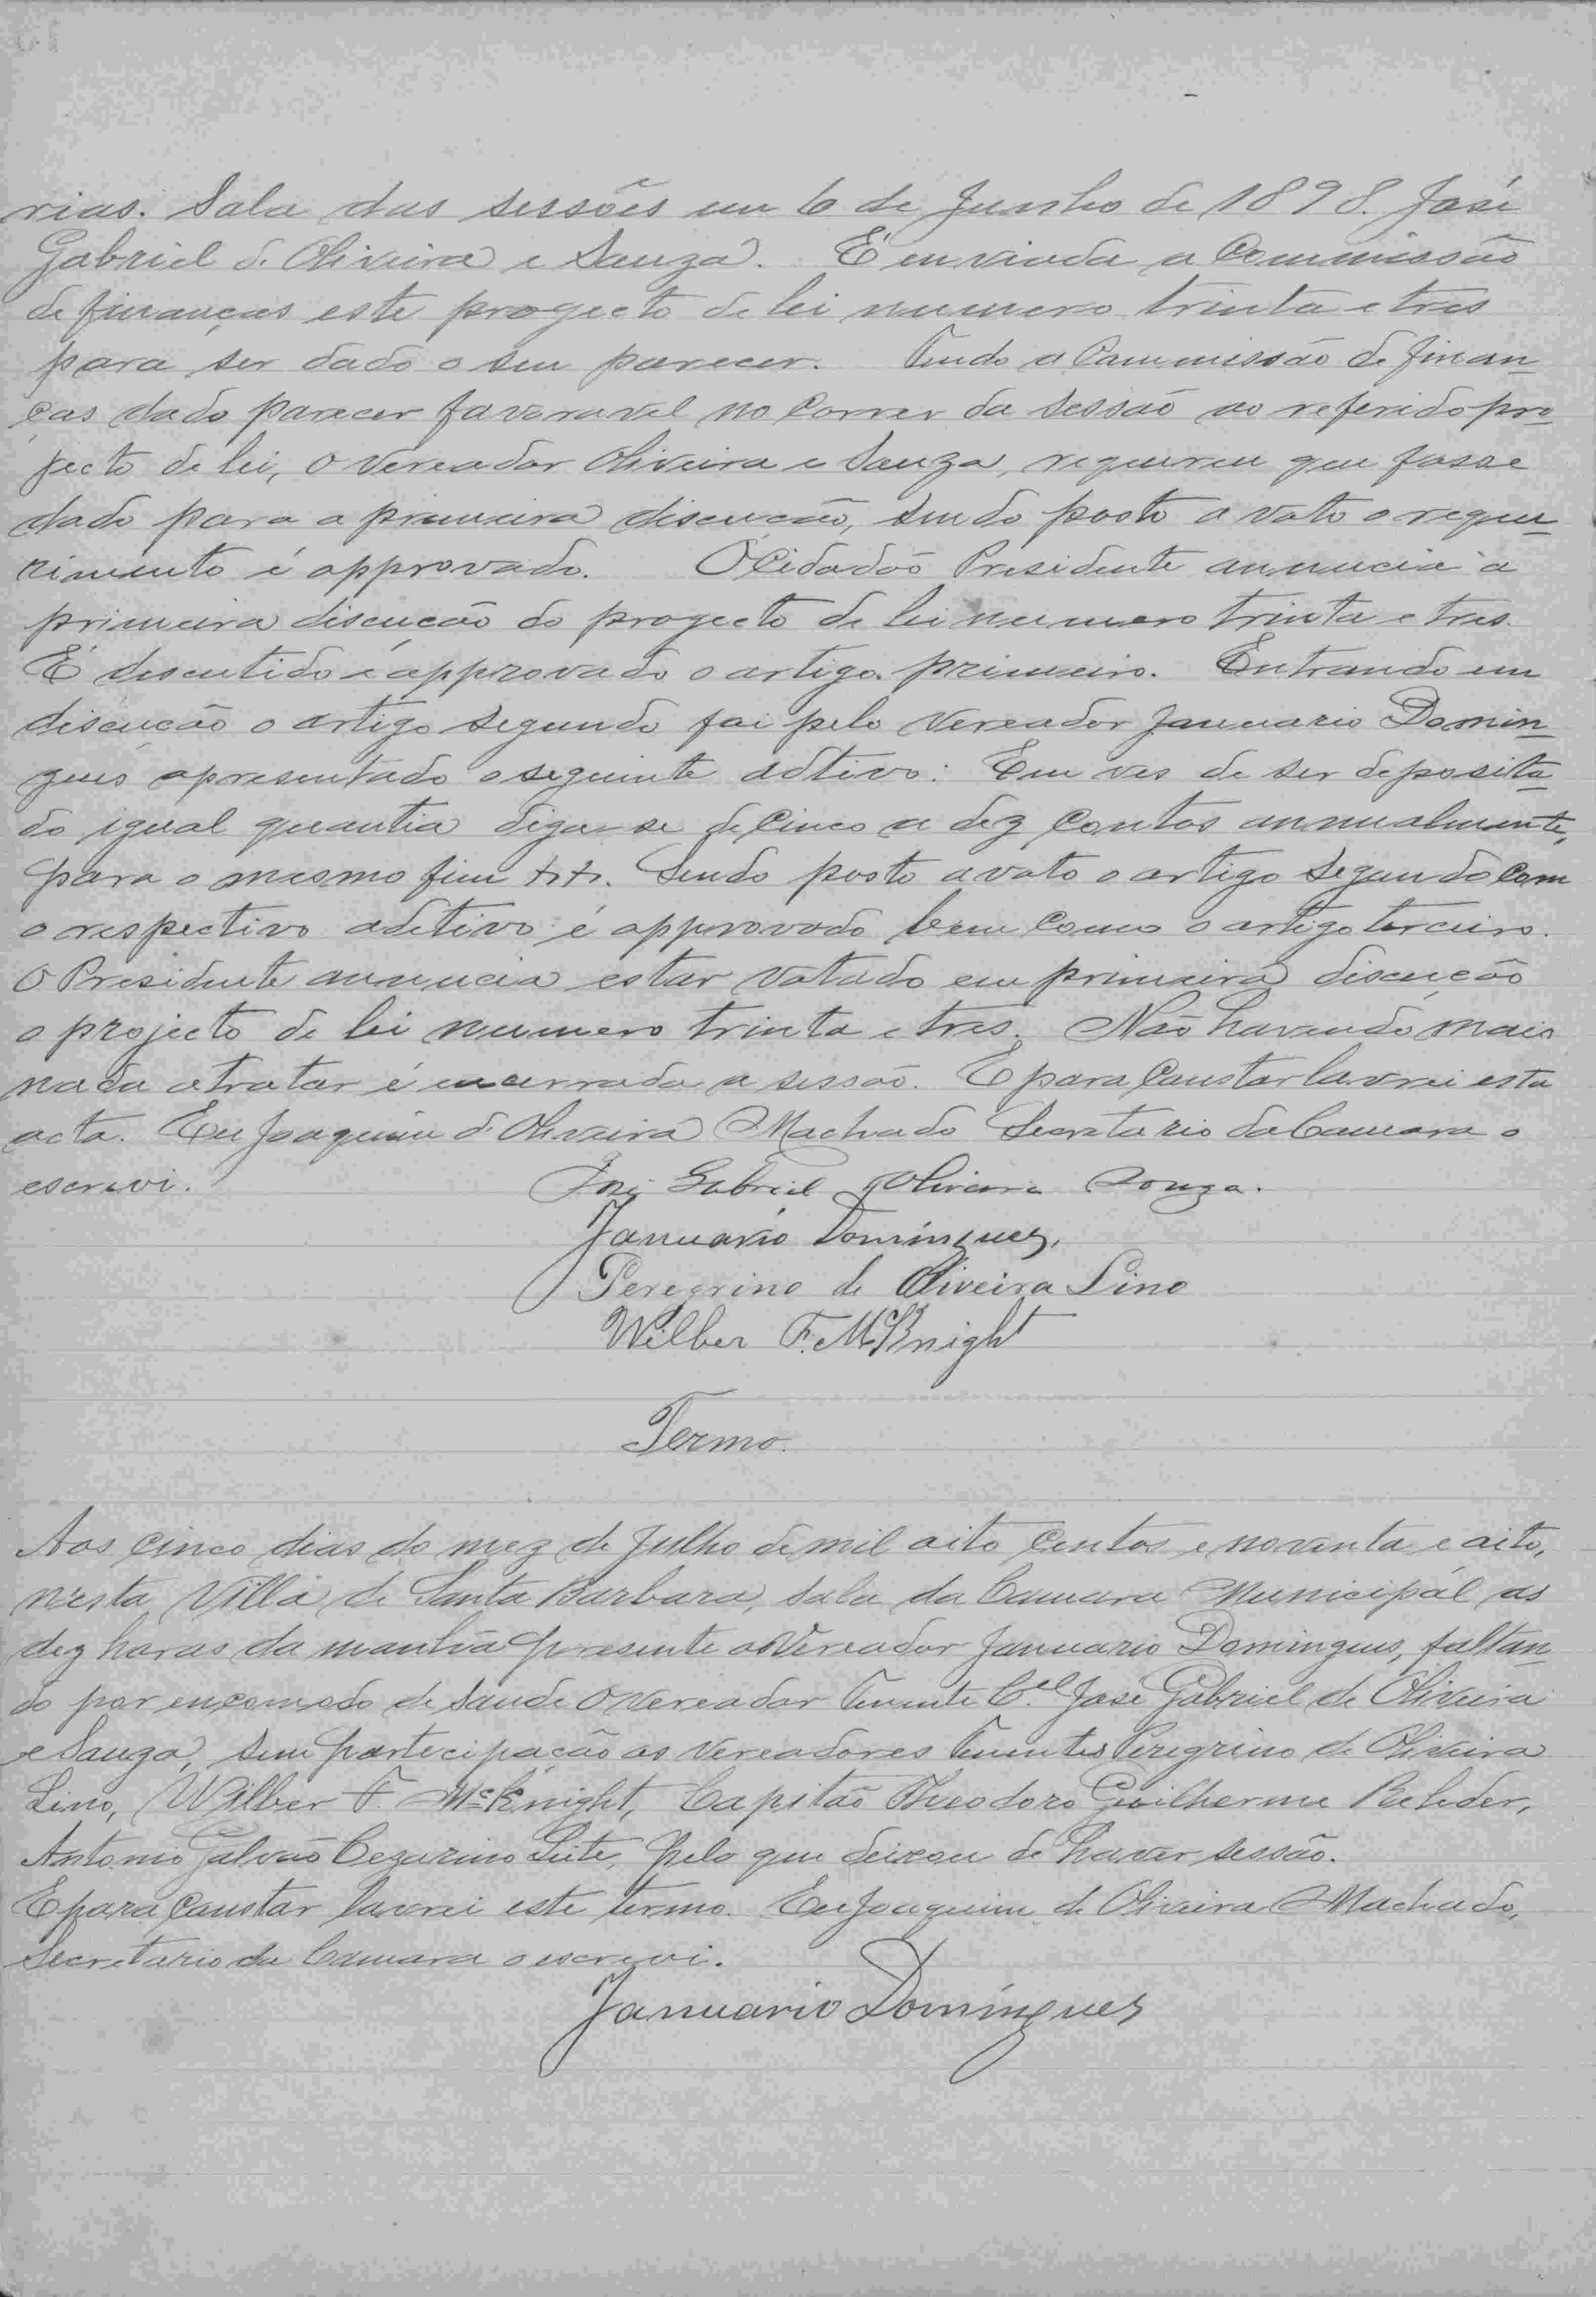 rias. Sala das sessões em 6 de Junho de 1898. José
Gabriel d. Oliveira e Souza. É enviada a Commissão
de finanças este progecto de lei numero trinta e tres
para ser dado o seu parecer. Tendo a Commissão de finan
ças dado parecer favoravel no correr da sessão ao referido pro
jecto de lei, o Vereador Oliveira e Souza, requereu que fosse
dado para a primeira discucão, sendo posto a voto o reque
rimento é approvado. O Cidadão Presidente annuncia a
primeira discução do progecto de lei numero trinta e tres.
É descutido e approvado o artigo primeiro. Entrando em
discução o artigo segundo foi pelo Vereador Januario Domin
gues apresentado o seguinte aditivo: Em ves de ser deposita
do igual quantia diga-se de cinco a dez contos annualmente,
para o mesmo fim Sendo posto a voto o artigo segundo com
o respectivo aditivo é approvado bem como o artigo terceiro.
O Presidente annuncia estar votado em primeira discução
o projecto de lei numero trinta e tres. Não havendo mais
nada a tratar é encerrada a sessão. E para constar lavrei esta
acta. Eu Joaquim d' Oliveira Machado Secretario da Camara o
escrevi. José Gabriel Oliveira Souza.
Januario Domingues,
Peregrino de Oliveira Lino
Wilber F. McKnight
Termo.
Aos cinco dias do mez de Julho de mil oito centos e noventa e oito,
n'esta Villa de Santa Barbara, sala da Camara Municipal as
dez horas da manhã presente o Vereador Januario Domingues, faltan
do por encomodo de saude o Vereador Tenente Cel José Gabriel de Oliveira
e Souza, sem partecipação os Vereadores Tenentes Peregrino de Oliveira
Lino, Wilber F. McKnight, Capitão Theodoro Guilherme Rehder,
Antonio Galvão Cezarino Leite, pelo que deixou de haver sessão.
E para constar lavrei este termo. Eu Joaquim de Oliveira Machado,
Secretario da Camara o escrevi.
Januario Domingues